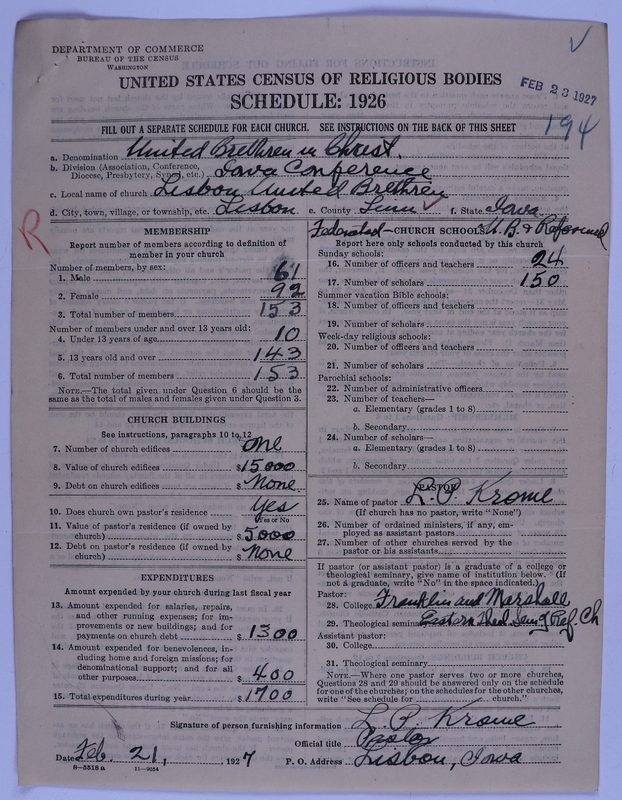 DEPARTMENT OF COMMERCE
BUREAU OF THE CENSUS
WASHINGTON
UNITED STATES CENSUS OF RELIGIOUS BODIES
SCHEDULE: 1926
FEB 23 1927
194
FILL OUT A SEPARATE SCHEDULE FOR EACH CHURCH. SEE INSTRUCTIONS ON THE BACK OF THIS SHEET
a. Denomination United Brethren in Christ.
b. Division (Association, Conference, Diocese, Presbytery, Synod, etc.) Iowa Conference
c. Local name of church Lisbon United Brethren
d. City, town, village, or township, etc. Lisbon e. County Linn f. State Iowa
R
MEMBERSHIP
Report number of members according to definition of
member in your church
Number of members, by sex:
1. Male 61
2. Female 92
3. Total number of members 153
Number of members under and over 13 years old:
4. Under 13 years of age 10
5. 13 years old and over 143
6. Total number of members 153
NOTE.—The total given under Question 6 should be
same as the total of males and females given under Question 3.
CHURCH BUILDINGS
See instructions, paragraphs 10 to 12
7. Number of church edifices one
8. Value of church edifices $15000
9. Debt on church edifices $ None
10. Does church own pastor's residence Yes
Yes or No
11. Value of pastor's residence (if owned by
church) $ 5000
12. Debt on pastor's residence (if owned by
church) $ None
EXPENDITURES
Amount expended by your church during last fiscal year
13. Amount expended for salaries, repairs,
and other running expenses; for im-
provements or new buildings; and for
payments on church debt $ 1300
14. Amount expended for benevolences, in-
cluding home and foreign missions; for
denominational support; and for all
other purposes $ 400
15. Total expenditures during year $ 1700
Federated— CHURCH SCHOOLS U.B. & Reformed
Report here only schools conducted by this church
Sunday schools:
16. Number of officers and teachers 24
17. Number of scholars 150
Summer vacation Bible schools:
18. Number of officers and teachers
19. Number of scholars
Week-day religious schools:
20. Number of officers and teachers
21. Number of scholars
Parochial schools:
22. Number of administrative officers
23. Number of teachers—
a. Elementary (grades 1 to 8)
b. Secondary
24. Number of scholars—
a. Elementary (grades 1 to 8)
b. Secondary
PASTOR
25. Name of pastor L. P. Krome
(If church has no pastor, write "None")
26. Number of ordained ministers, if any, em-
ployed as assistant pastors
27. Number of other churches served by the
pastor or his assistants
If pastor (or assistant pastor) is a graduate of a college or
theological seminary, give name of institution below. (If
not a graduate, write "No" in the space indicated.)
Pastor:
28. College Franklin and Marshall
29. Theological seminary Eastern Theol. Sem. of Ref. Ch
Assistant pastor:
30. College
31. Theological seminary
NOTE.—Where one pastor serves two or more churches,
Questions 28 and 29 should be answered only on the schedule
for one of the churches; on the schedules for the other churches,
write "See schedule for church."
Signature of person furnishing information L. P. Krome
Official title Pastor
Date Feb. 21, 1927 P. O. Address Lisbon, Iowa
8—5518a 11—9054